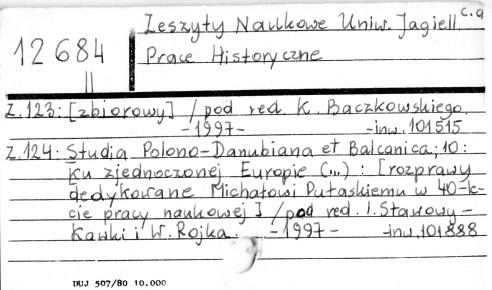 c.d
Zeszyty Naukowe Uniw. Jagiell.
12684
II
Prace Historyczne
Z.123: [zbiorowy] / pod red. K. Baczkowskiego.
-1997- -inw. 101515
Z.124: Studia Polono-Danubiana et Balcanica; 10:
Ku zjednoczonej Europie (...) : [rozprawy
dedykowane Michałowi Pułaskiemu w 40-le-
cie pracy naukowej] / pod red. I. Stawowy-
Kawki i W. Rojka. -1997- -inw. 101888
DUJ 507/80 10.000